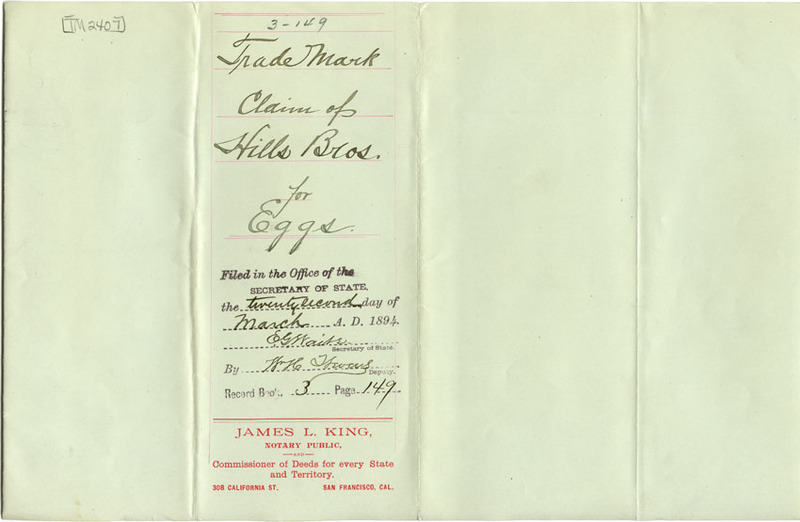 [TM2407]
3-149
Trade Mark
Claim of
Hills Bros.
for
Eggs.
Filed in the Office of the
SECRETARY OF STATE,
the twenty second day of
March A. D. 1894
E.G. Waite
Secretary of State.
By W.H.
Deputy.
Record Book 3 Page 149
JAMES L. KING,
NOTARY PUBLIC,
AND
Commissioner of Deeds for every State
and Territory.
308 CALIFORNIA ST. SAN FRANCISCO, CAL.